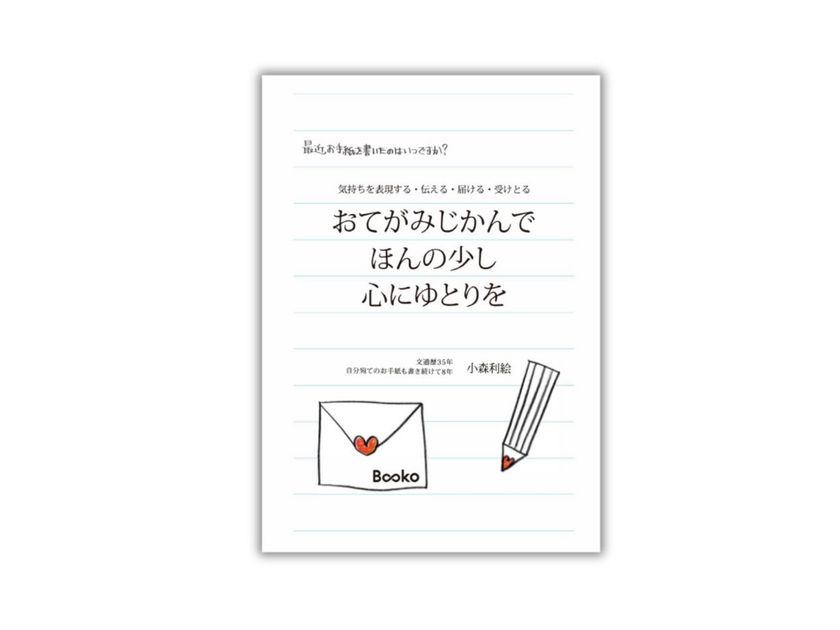 最近お手紙を書いたのはいつですか?
気持ちを表現する・伝える・届ける・受けとる
おてがみじかんで
ほんの少し
心にゆとりを
文通歴35年
自分宛てのお手紙も書き続けて8年
小森利絵
Booko